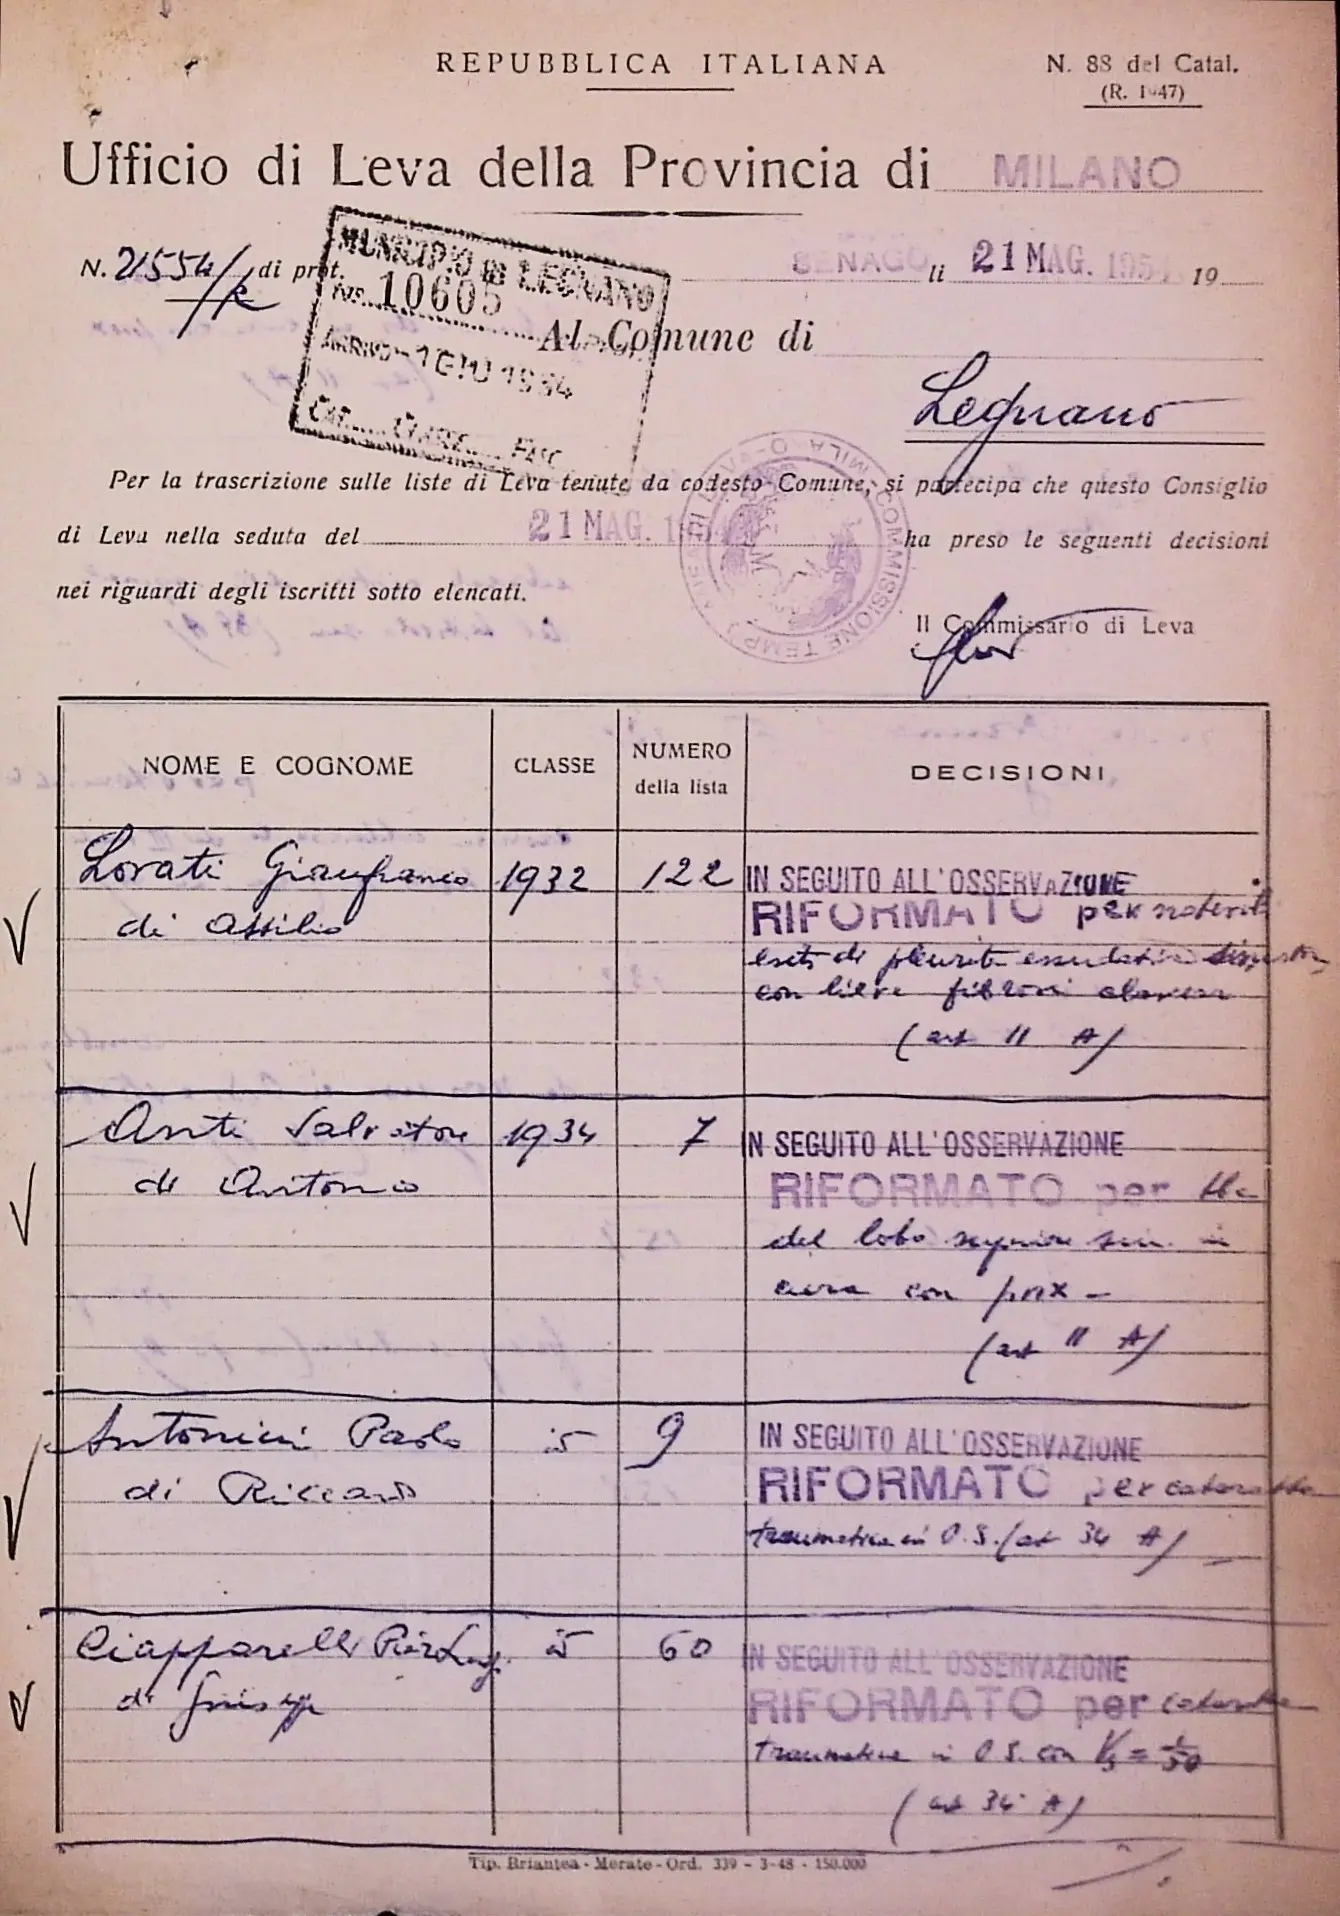 REPUBBLICA ITALIANA
N. 88 del Catal.
(R. 1947)
Ufficio di Leva della Provincia di MILANO
N. 21554/ di prot.
SENAGO li 21 MAG. 1954 19
MUNICIPIO DI LEGNANO
No. 10605
ARRIVO - 1 GIU 1954
CAT. CLASSE FASC.
Al Comune di
Legnano
Per la trascrizione sulle liste di Leva tenute da codesto Comune, si partecipa che questo Consiglio
di Leva nella seduta del 21 MAG. 1954 ha preso le seguenti decisioni
nei riguardi degli iscritti sotto elencati.
COMMISSIONE TEMP
Il Commissario di Leva
NOME E COGNOME
CLASSE
NUMERO
della lista
DECISIONI
Lorati Gianfranco
1932
122
IN SEGUITO ALL'OSSERVAZIONE
di Attilio
RIFORMATO per
esiti di pleurite essudativa sinistra
con lieve
(art 11 A)
Anti Salvatore
1934
7
IN SEGUITO ALL'OSSERVAZIONE
di Antonio
RIFORMATO per tbc
del lobo superiore sin. in
cura con pnx -
(art 11 A)
Antonini Paolo
is
9
IN SEGUITO ALL'OSSERVAZIONE
di Riccardo
RIFORMATO per cataratta
traumatica in O.S. (art 34 A)
Ciapparelli Pierluigi
is
60
IN SEGUITO ALL'OSSERVAZIONE
di Giuseppe
RIFORMATO per cataratta
traumatica in O.S. con Vs = 1/50
(art 34 A)
Tip. Briantea - Merate - Ord. 339 - 3-48 - 150.000